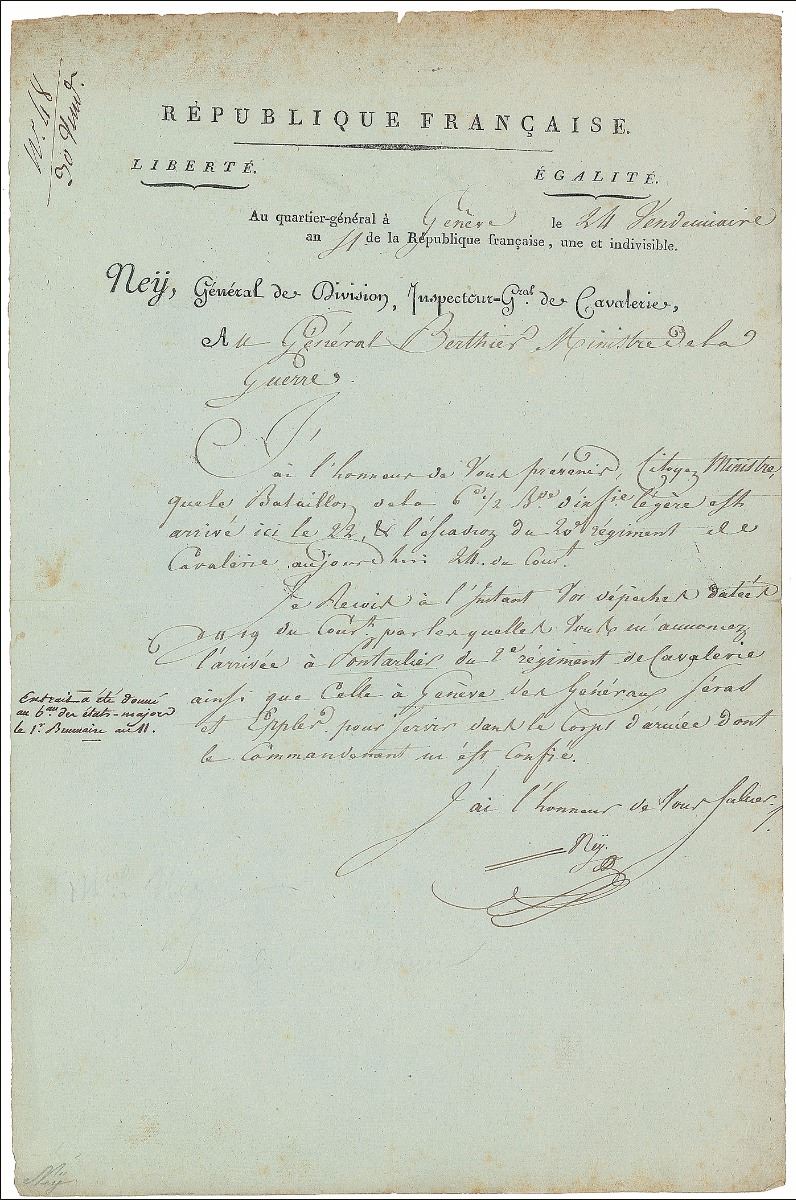 Nr. 48
30 Vend.re
RÉPUBLIQUE FRANÇAISE.
LIBERTÉ.
ÉGALITÉ.
Au quartier-général à Genève le 24 Vendemiaire
an 11 de la République française, une et indivisible.
Neÿ, Général de Division, Inspecteur-Gral. de Cavalerie,
Au Général Berthier Ministre de la
Guerre.
J'ai l'honneur de Vous prévenir, Citoyen Ministre,
que le Bataillon de la 6e 1/2 B.de d'inf.ie légère est
arrivé ici le 22, & l'éscadron du 20e régiment de
Cavalerie aujourdhui 24. du Cour.t
Je Reçois à l'Instant Vos dépeches datées
du 19 du Cour.t par lesquelles Vous m'annoncez
l'arrivée à Pontarlier du 2e régiment de Cavalerie
ainsi que Celle à Genève des Généraux Séras
et Eppler, pour Servir dans le Corps d'armée dont
le Commandement m'est Confié.
Extrait a été donné
au b.au des états-majors
le 1.er Brumaire an 11.
J'ai l'honneur de Vous Saluer
Neÿ.
Ney